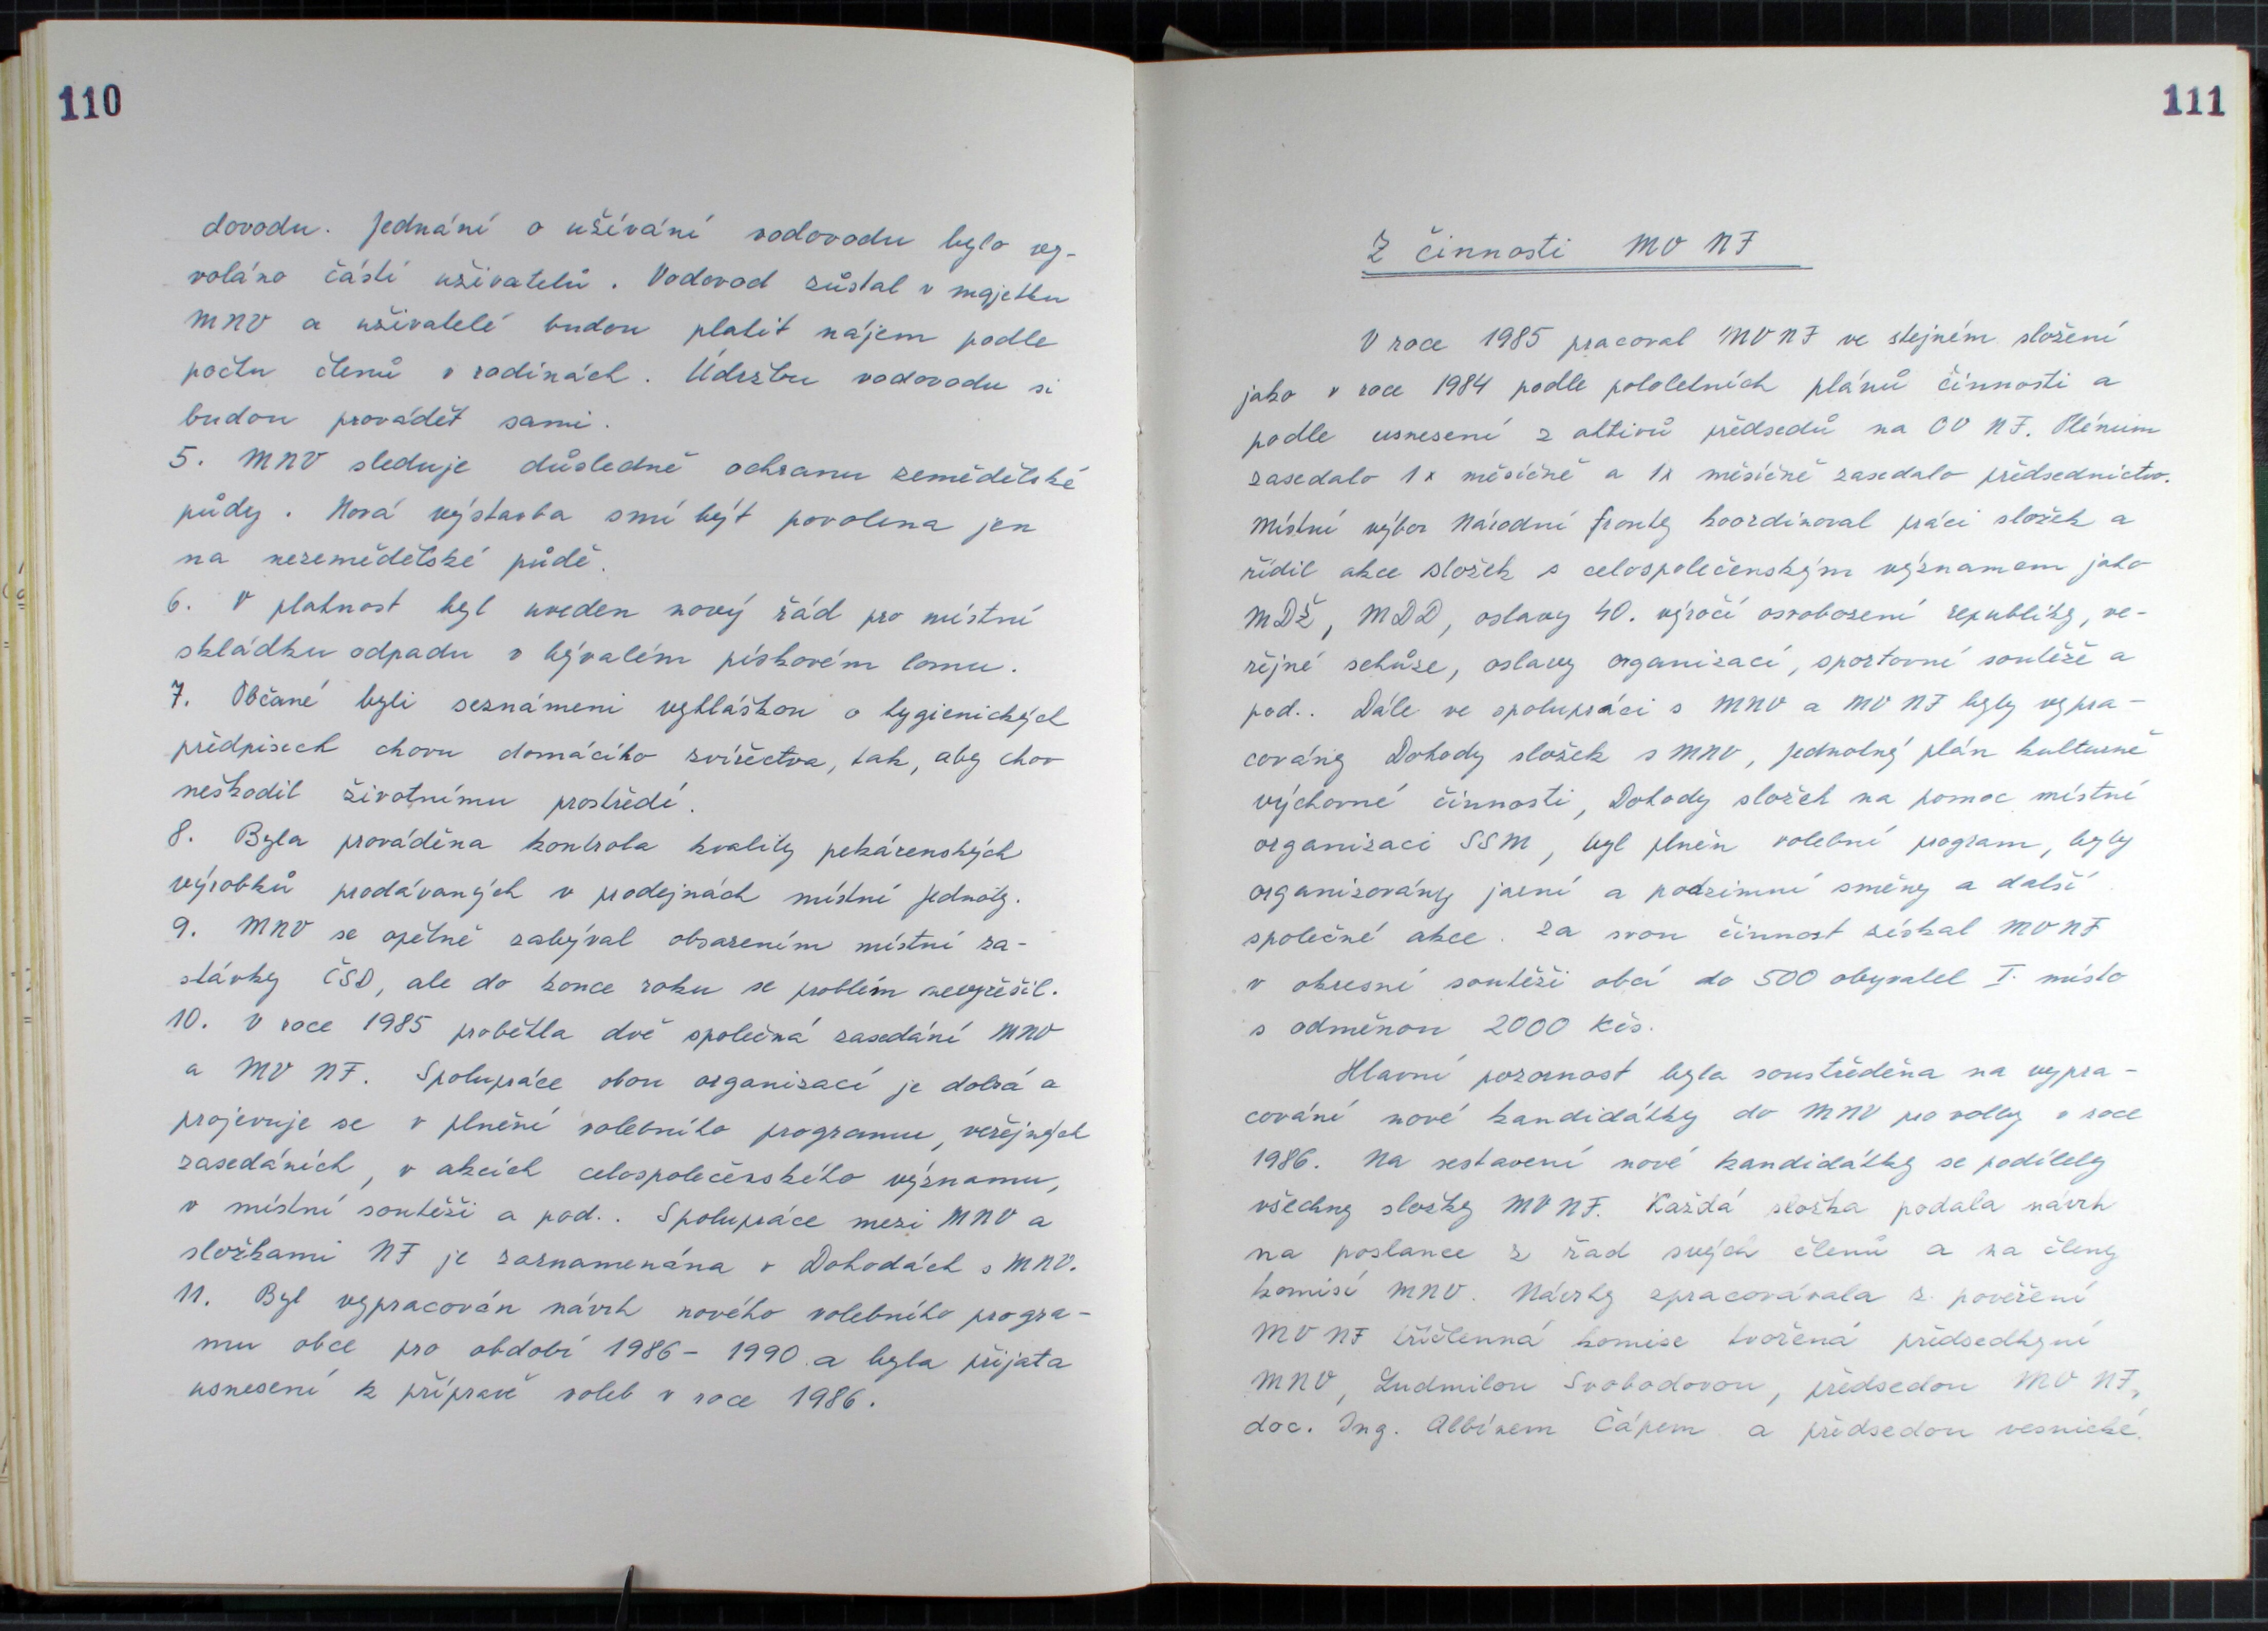 110
dovodu. Jednání o užívání vodovodu bylo vy-
voláno částí uživatelů. Vodovod zůstal v majetku
MNV a uživatelé budou platit nájem podle
počtu členů v rodinách. Údržbu vodovodu si
budou provádět sami.
5. MNV sleduje důsledně ochranu zemědělské
půdy. Nová výstavba smí být povolena jen
na nezemědělské půdě.
6. V platnost byl uveden nový řád pro místní
skládku odpadu v bývalém pískovém lomu.
7. Občané byli seznámeni vyhláškou o hygienických
předpisech chovu domácího zvířectva, tak, aby chov
neškodil životnímu prostředí.
8. Byla prováděna kontrola kvality pekárenských
výrobků prodávaných v prodejnách místní Jednoty.
9. MNV se opětně zabýval obsazením místní za-
stávky ČSD, ale do konce roku se problém nevyřešil.
10. V roce 1985 proběhla dvě společná zasedání MNV
a MV NF. Spolupráce obou organizací je dobrá a
projevuje se v plnění volebního programu, veřejných
zasedáních, v akcích celospolečenského významu,
v místní soutěži a pod.. Spolupráce mezi MNV a
složkami NF je zaznamenána v Dohodách s MNV.
11. Byl vypracován návrh nového volebního progra-
mu obce pro období 1986 - 1990 a byla přijata
usnesení k přípravě voleb v roce 1986.
111
Z činnosti MV NF
V roce 1985 pracoval MV NF ve stejném složení
jako v roce 1984 podle pololetních plánů činnosti a
podle usnesení z aktivů předsedů na OV NF. Plénum
zasedalo 1x měsíčně a 1x měsíčně zasedalo předsednictvo.
Místní výbor Národní fronty koordinoval práci složek a
řídil akce složek s celospolečenským významem jako
MDŽ, MDD, oslavy 40. výročí osvobození republiky, ve-
řejné schůze, oslavy organizací, sportovní soutěže a
pod.. Dále ve spolupráci s MNV a MV NF byly vypra-
covány Dohody složek s MNV, Jednotný plán kulturně
výchovné činnosti, Dohody složek na pomoc místní
organizaci SSM, byl plněn volební program, byly
organizovány jarní a podzimní směny a další
společné akce. Za svou činnost získal MV NF
v okresní soutěži obcí do 500 obyvatel I. místo
s odměnou 2000 Kčs.
Hlavní pozornost byla soustředěna na vypra-
cování nové kandidátky do MNV pro volby v roce
1986. Na sestavení nové kandidátky se podílely
všechny složky MV NF. Každá složka podala návrh
na poslance z řad svých členů a na členy
komisí MNV. Návrhy zpracovávala z pověření
MV NF tříčlenná komise tvořená předsedkyní
MNV, Ludmilou Svobodovou, předsedou MV NF,
doc. Ing. Albínem Čápem a předsedou vesnické